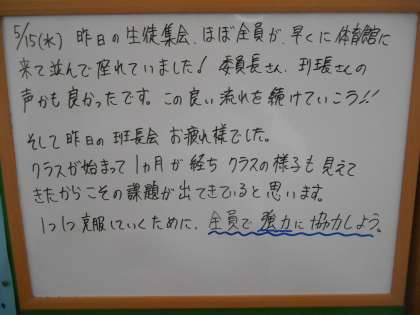 5/15(水) 昨日の生徒集会、ほぼ全員が、早くに体育館に
来て並んで座れていました! 委員長さん、班長さんの
声かも良かったです。この良い流れを続けていこう!!
そして昨日の班長会 お疲れ様でした。
クラスが始まって1ヵ月が経ち クラスの様子も見えて
きたからこその課題が出てきていると思います。
1つ1つ克服していくために、全員で強力に協力しよう。